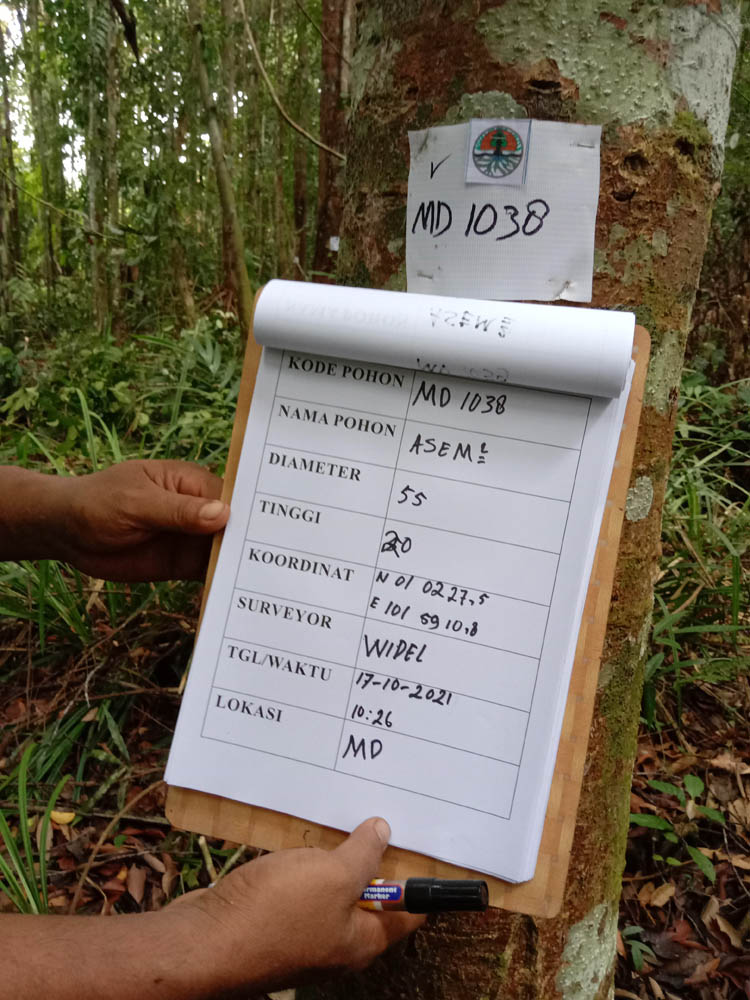 MD 1038
ASEM
KODE POHON MD 1038
NAMA POHON ASEM
DIAMETER 55
TINGGI 20
KOORDINAT N 01 02 27,5
E 101 59 10,8
SURVEYOR WIDEL
TGL/WAKTU 17-10-2021
10:26
LOKASI MD
Permanent
Marker